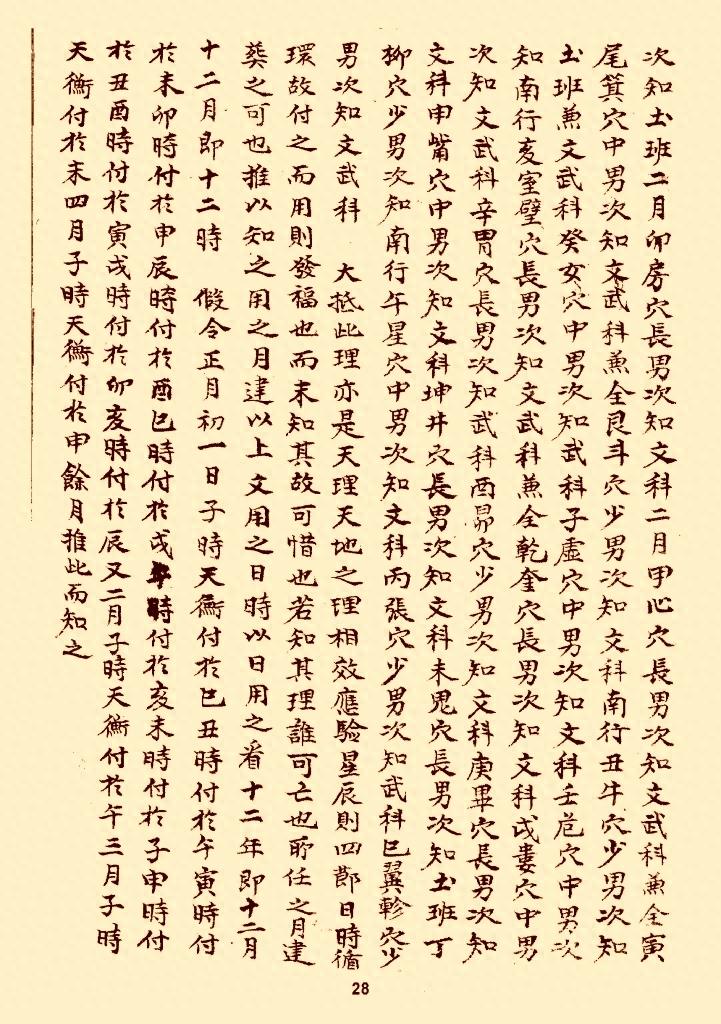 次知土班二月卯房穴長男次知文科二月甲心穴長男次知文武科兼全寅
尾箕穴中男次知文武科兼全艮斗穴少男次知文科南行丑牛穴少男次知
土班兼文武科癸女穴中男次知武科子虛穴中男次知文科壬危穴中男次
知南行亥室壁穴長男次知文武科兼全乾奎穴長男次知文科戌婁穴中男
次知文武科辛胃穴長男次知武科酉昴穴少男次知文科庚畢穴長男次知
文科申觜穴中男次知文科坤井穴長男次知文科未鬼穴長男次知土班丁
柳穴少男次知南行午星穴中男次知文科丙張穴少男次知武科巳翼軫穴少
男次知文武科 大抵此理亦是天理天地之理相效應驗星辰則四節日時循
環故付之而用則發福也而未知其故可惜也若知其理誰可亡也所任之月建
葬之可也推以知之用之月建以上文用之日時以日用之看十二年即十二月
十二月即十二時 假令正月初一日子時天衡付於巳丑時付於午寅時付
於未卯時付於申辰時付於酉巳時付於戌時付於亥未時付於子申時付
於丑酉時付於寅戌時付於卯亥時付於辰又二月子時天衡付於午三月子時
天衡付於未四月子時天衡付於申餘月推此而知之
28